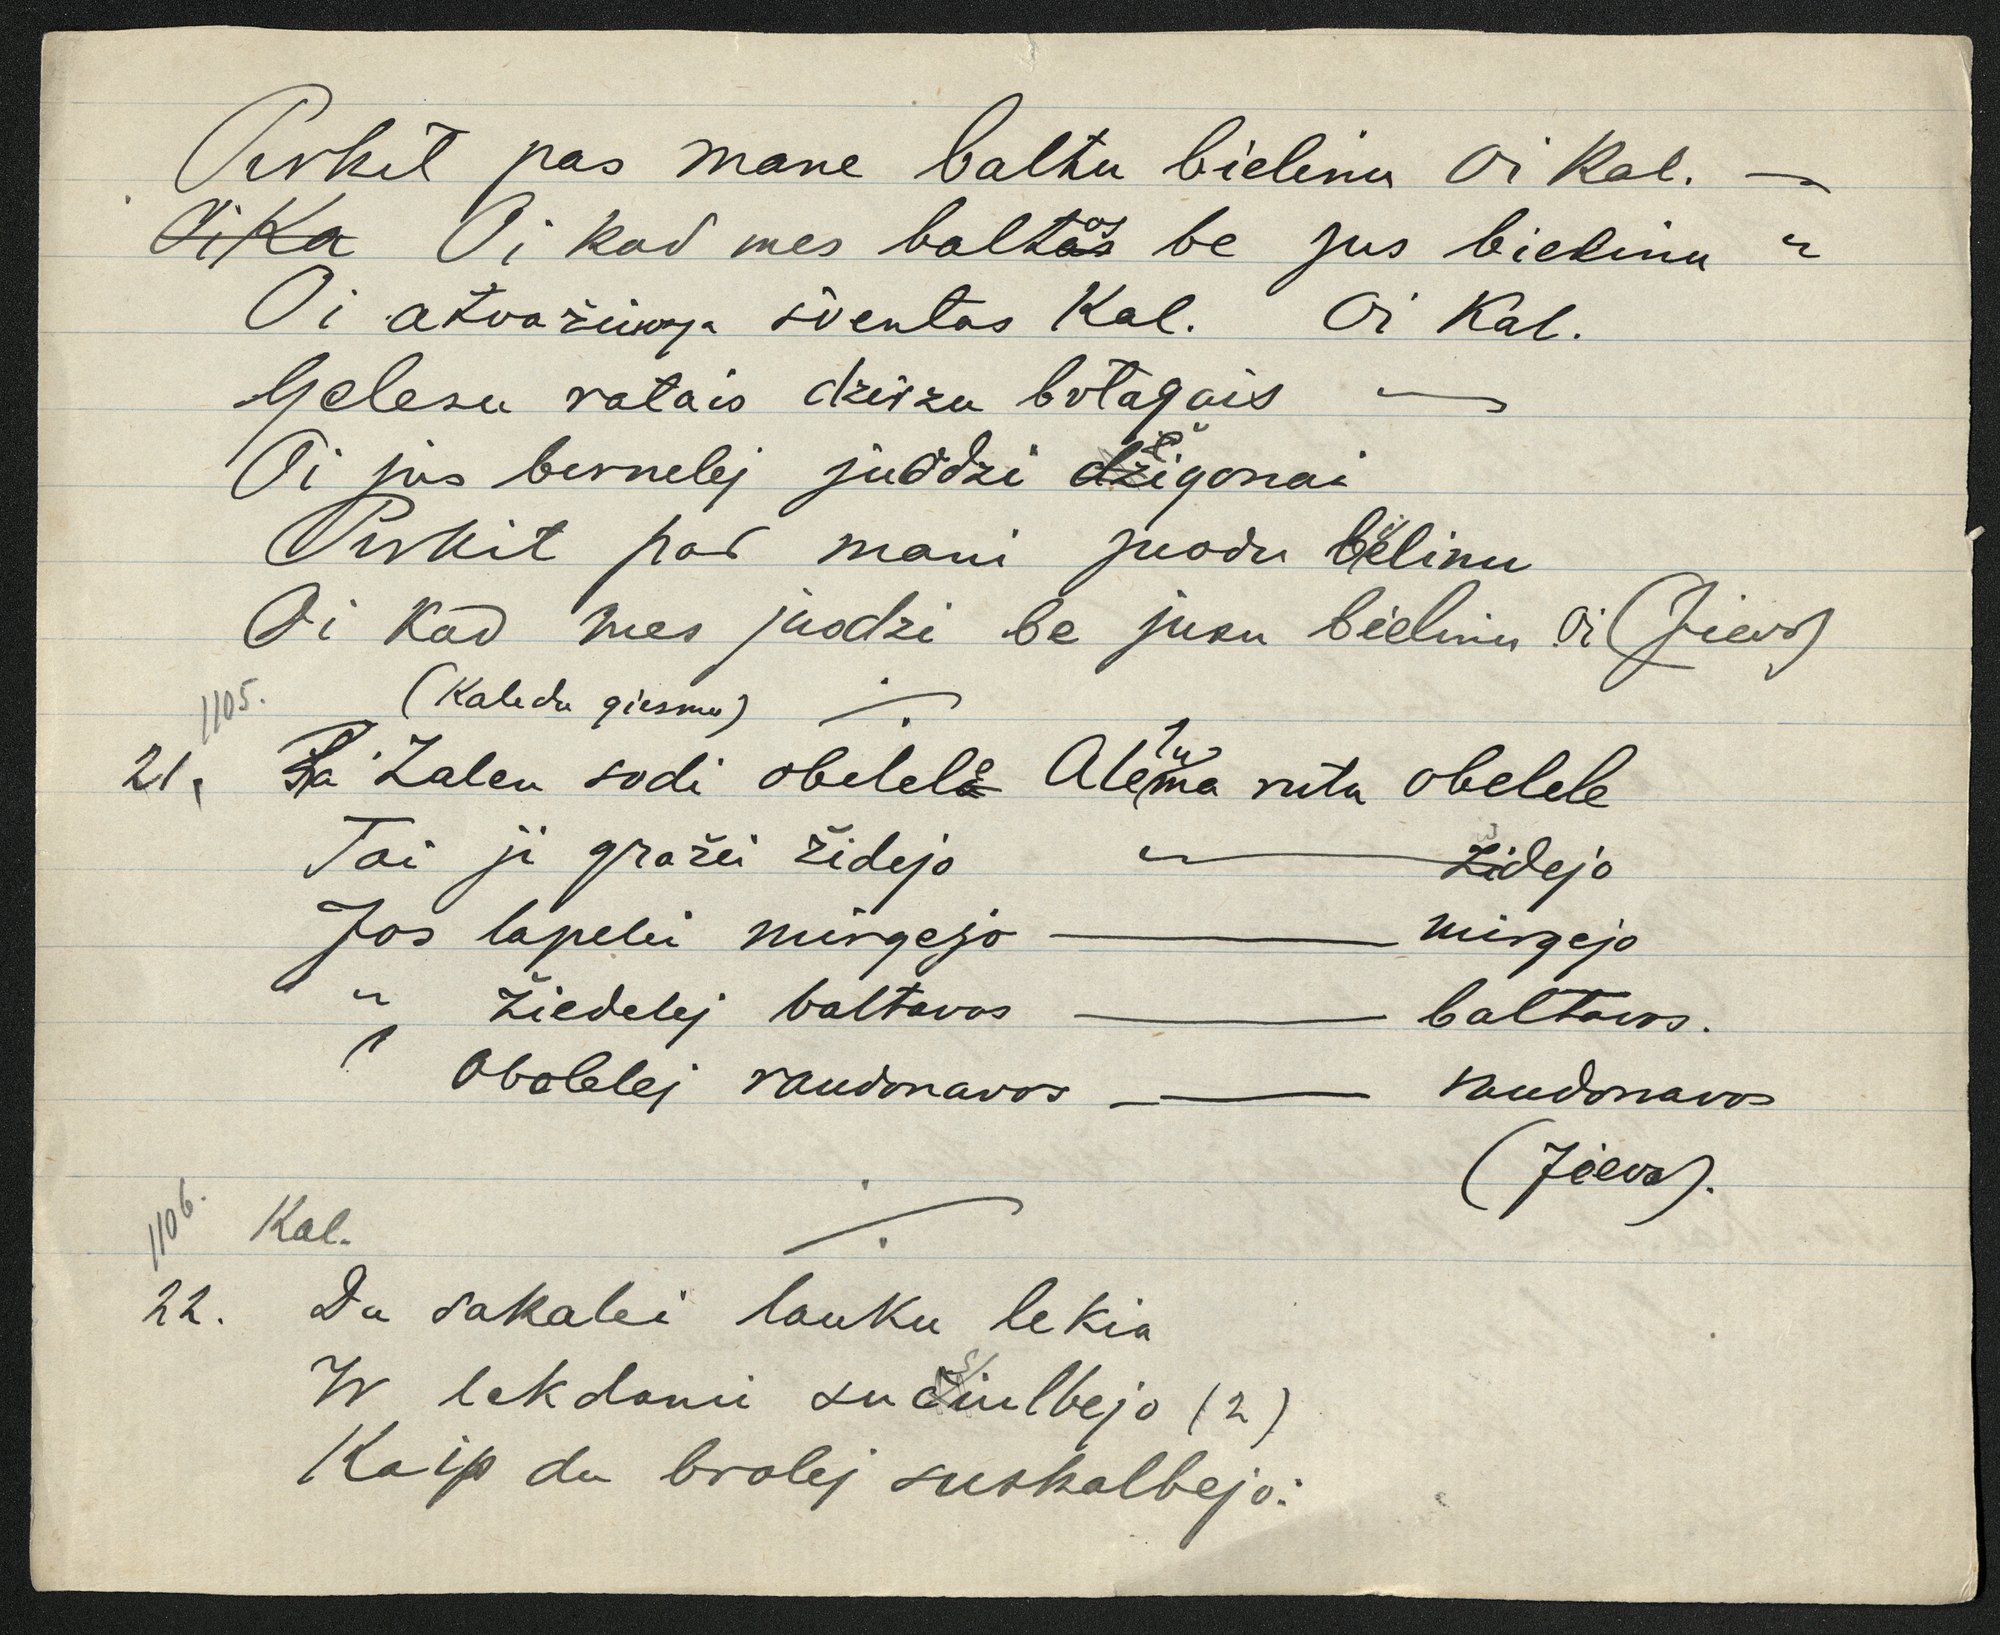 Pirkit pas mane baltu bielinu Oi Kal. —
Oi Ka Oi kad mes baltos be jus bielinu "
Oi atvažiuoja šventas Kal. Oi Kal.
Gelesu ratais dziržu botagais —
Oi jus bernelej juodzi čigonai
Pirkit pas mani juodu bielinu
Oi kad mes juodzi be jusu bielinu Oi (Jieva)
1105. (Kaledu giesmu) ./.
21. Pa Žaleu sodi obelele Alelu ma ruta obelele
Tai ji gražei židejo " — židejo
Jos lapelei mirgejo — mirgejo
" žiedelej baltavos — baltavos.
" Obolelej raudonavos — raudonavos
(Jieva).
1106. Kal. ./.
22. Du sakalei lauku lekia
Ir lekdami sučiulbejo (2)
Kaip du brolej suskalbejo: